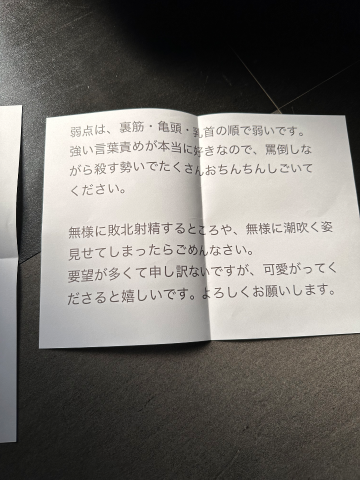 弱点は、裏筋・亀頭・乳首の順で弱いです。
強い言葉責めが本当に好きなので、罵倒しな
がら殺す勢いでたくさんおちんちんしごいて
ください。
無様に敗北射精するところや、無様に潮吹く姿
見せてしまったらごめんなさい。
要望が多くて申し訳ないですが、可愛がってく
ださると嬉しいです。よろしくお願いします。